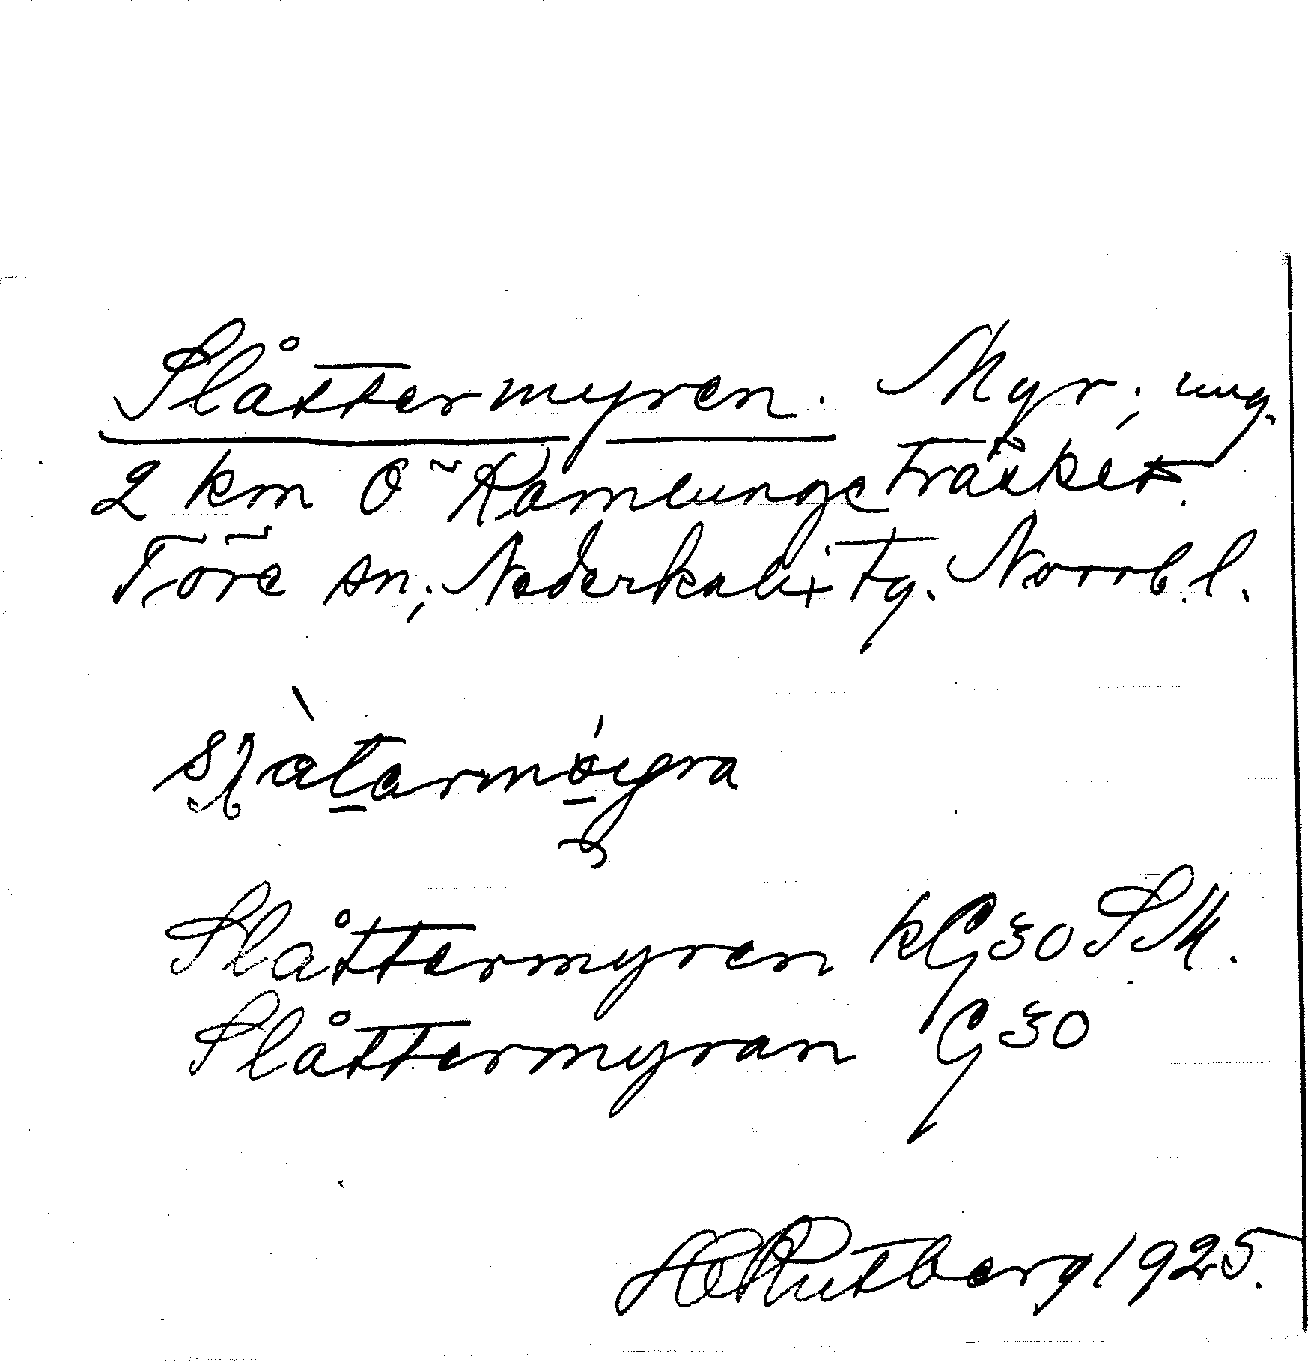 Slåttermyren. Myr; ung.
2 km Ö Kamlungeträsket.
Töre sn; Nederkalix tg. Norrb. l.
Slåttermyren kG30 SM.
Slåttermyran G30
HRutberg 1925.